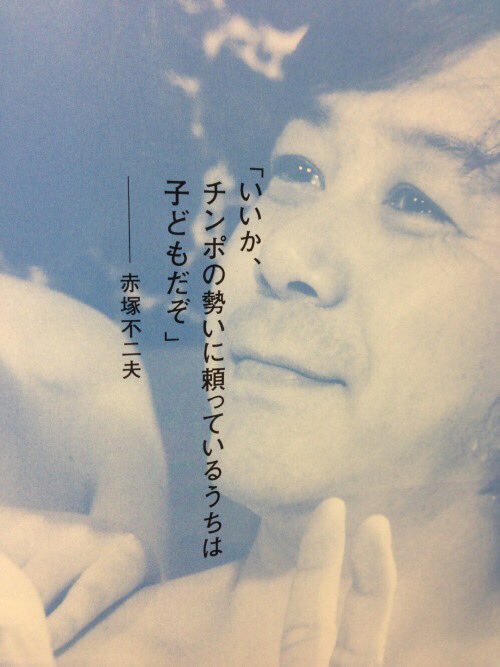 「いいか、
チンポの勢いに頼っているうちは
子どもだぞ」
──赤塚不二夫